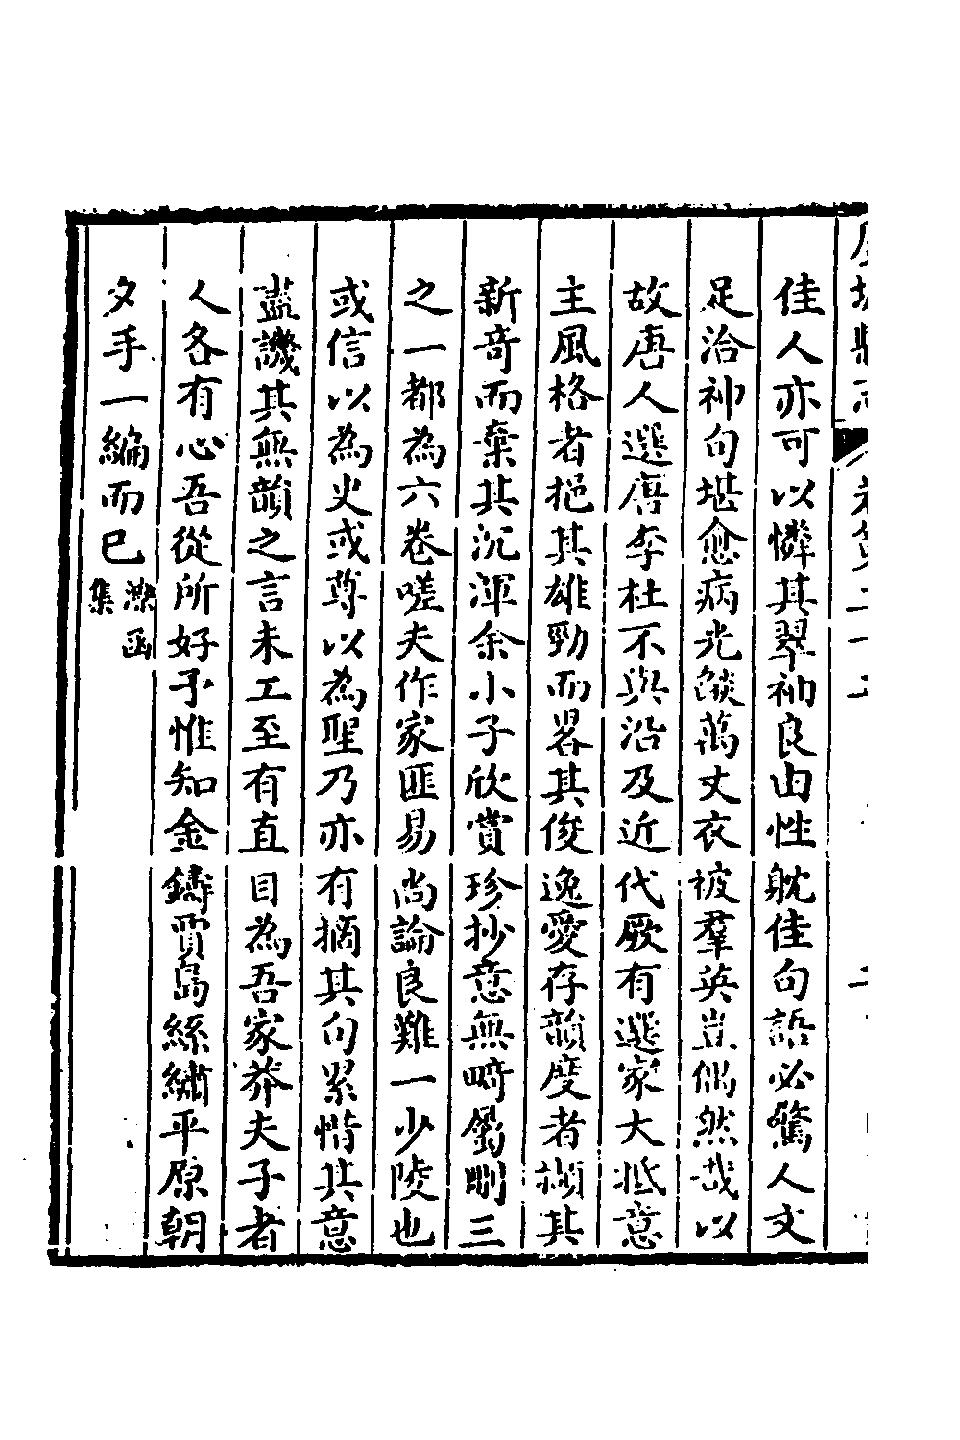 佳人亦可以憐其翠袖良由性躭佳句語必驚人文
足洽神句堪愈病光燄萬丈衣被羣英豈偶然哉以
故唐人選唐李杜不與沿及近代厥有選家大抵意
主風格者挹其雄勁而畧其俊逸愛存韻度者擷其
新奇而棄其沉渾余小子欣賞珍抄意無畸斵删三
之一都為六卷嗟夫作家匪易尚論良難一少陵也
或信以為史或尊以為聖乃亦有摘其句累惜其意
盡譏其無韻之言未工至有直目為吾家莽夫子者
人各有心吾從所好予惟知金鑄賈島絲繡平原朝
夕手一編而已
集